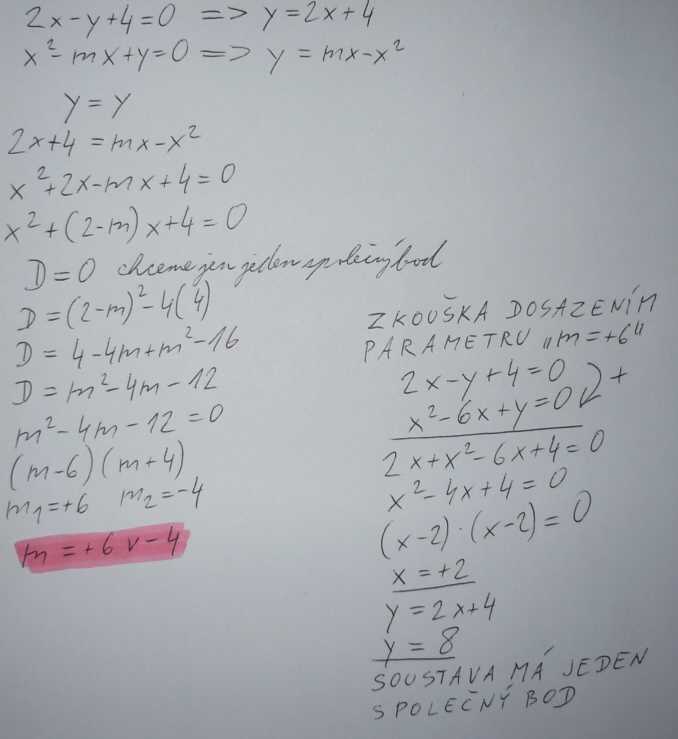 2x-y+4=0 => y=2x+4
x²-mx+y=0 => y=mx-x²
y=y
2x+4=mx-x²
x²+2x-mx+4=0
x²+(2-m)x+4=0
D=0 chceme jen jeden společný bod
D=(2-m)²-4(4)
D=4-4m+m²-16
D=m²-4m-12
m²-4m-12=0
(m-6)(m+4)
m₁=+6 m₂=-4
m=+6 v -4
ZKOUŠKA DOSAZENÍM
PARAMETRU „m=+6"
2x-y+4=0
x²-6x+y=0 +
2x+x²-6x+4=0
x²-4x+4=0
(x-2)·(x-2)=0
x=+2
y=2x+4
y=8
SOUSTAVA MÁ JEDEN
SPOLEČNÝ BOD